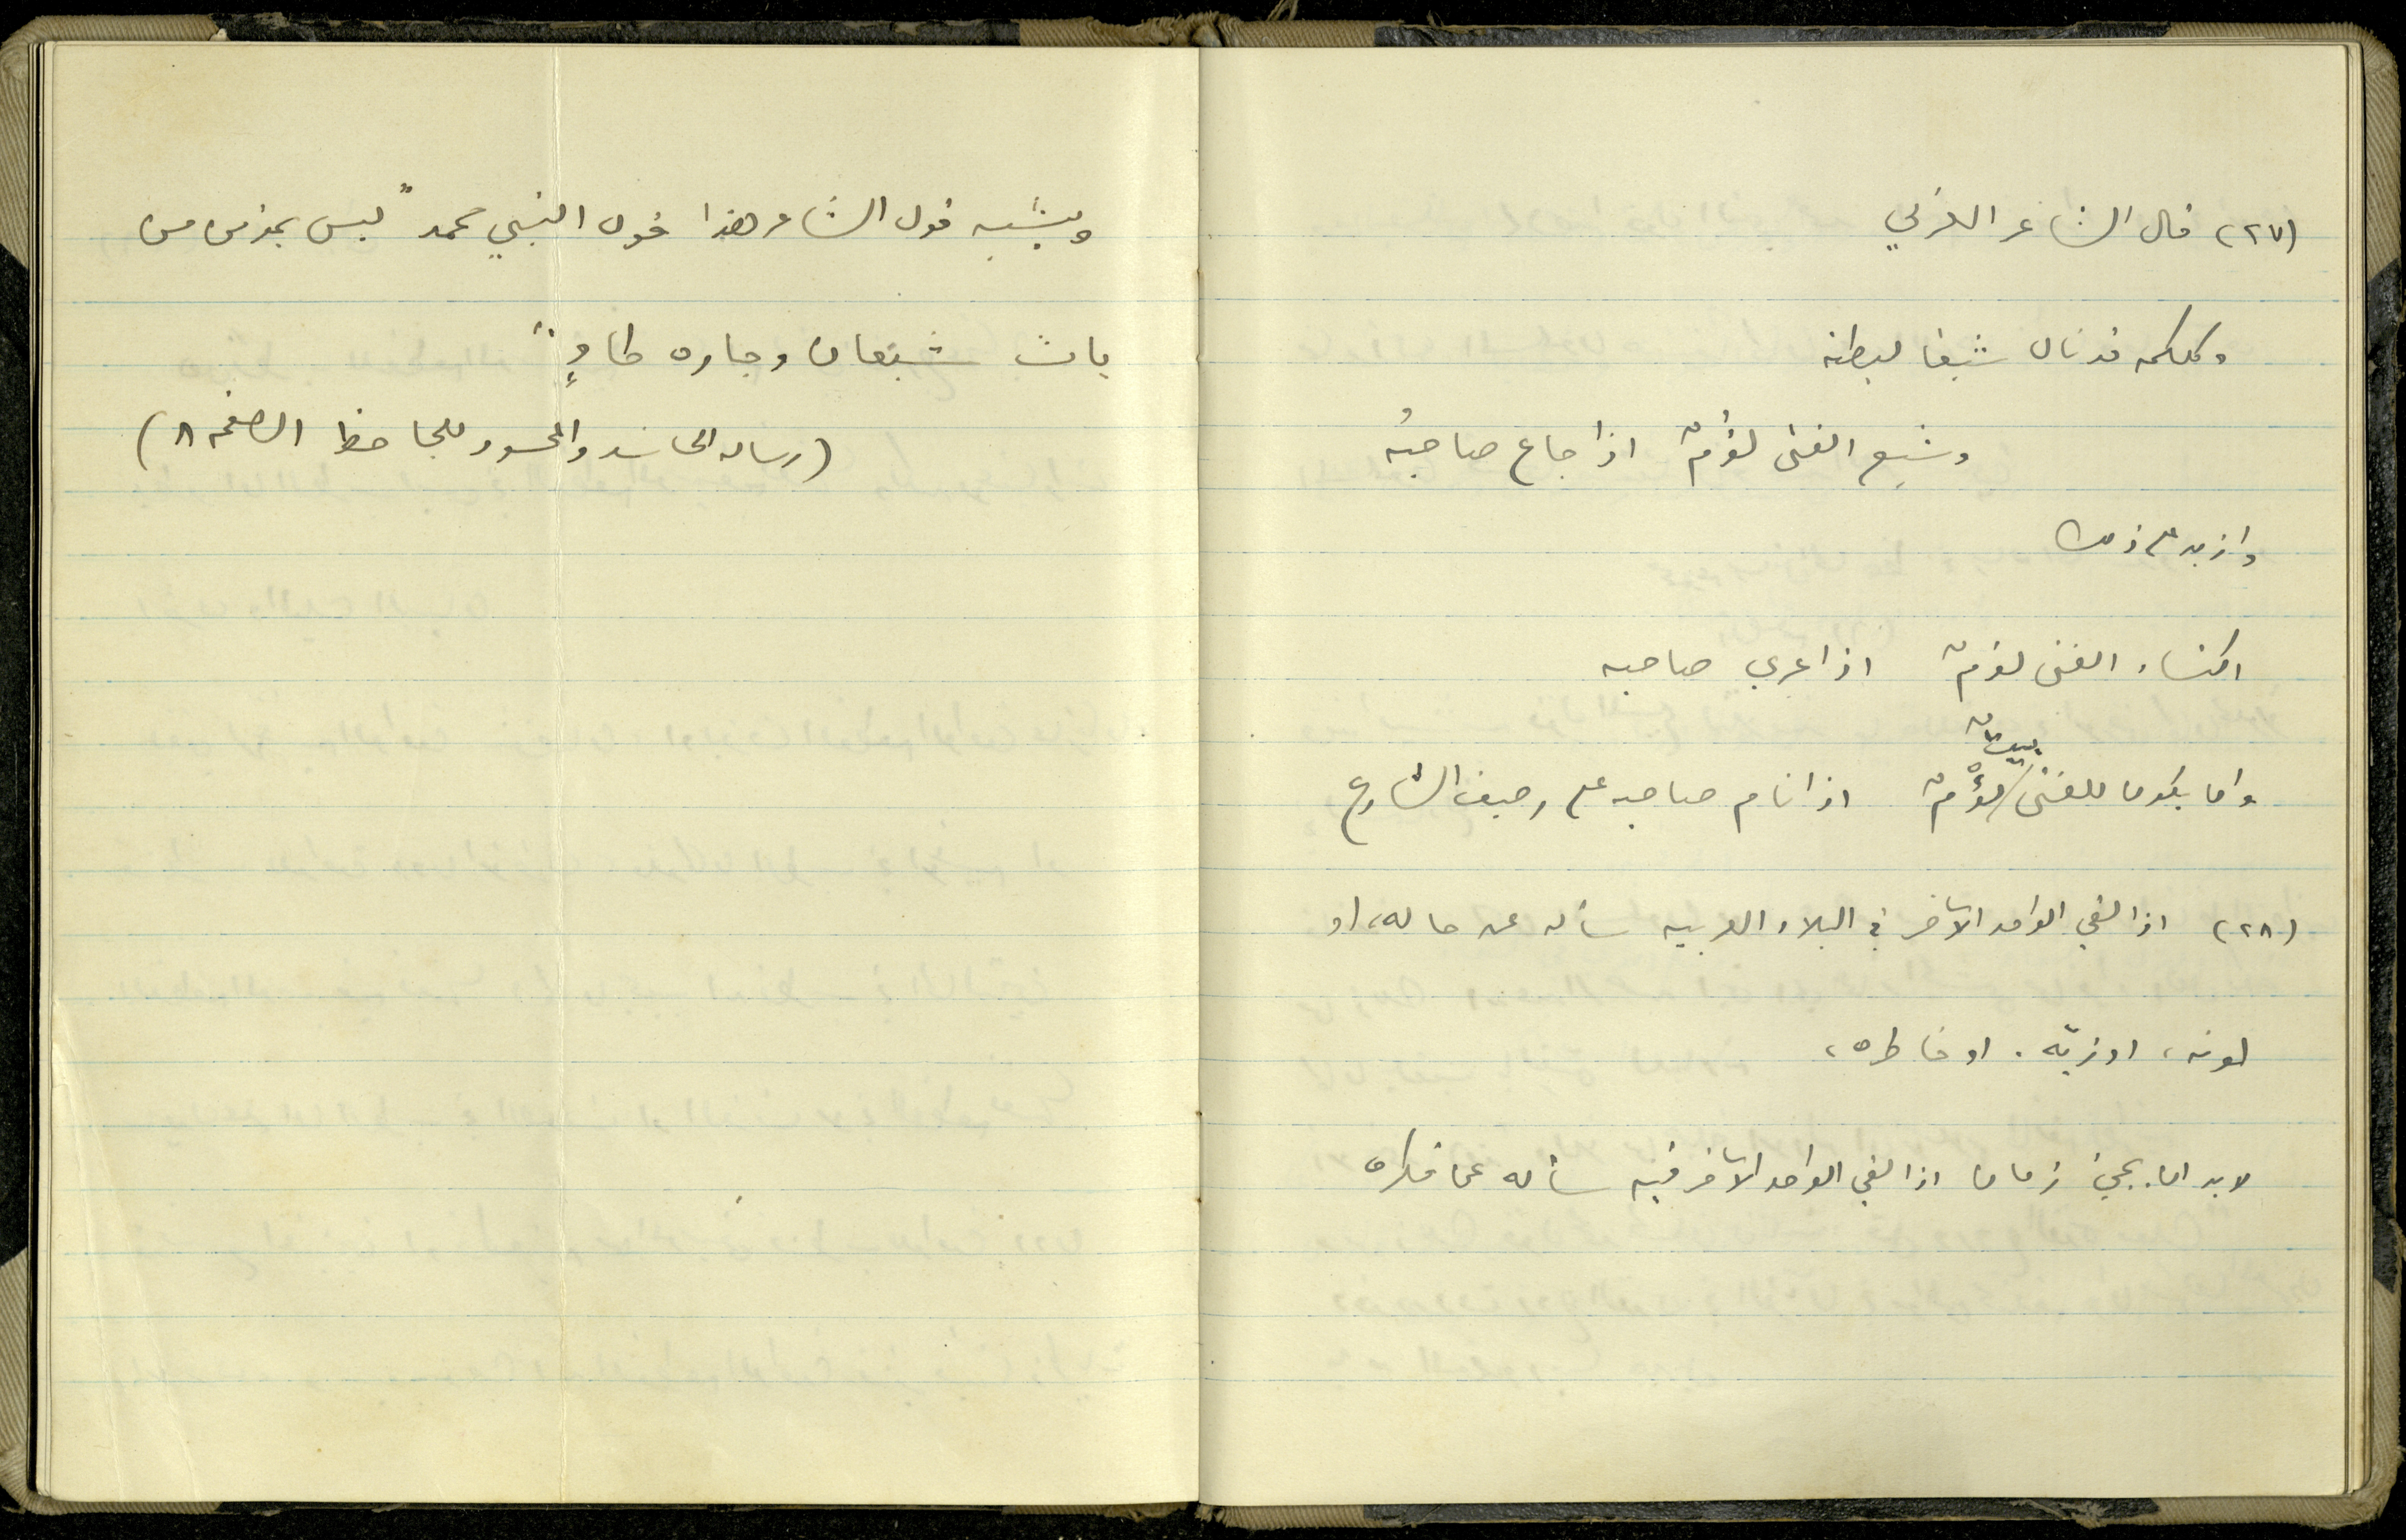 (٢٧) قال الشاعر العربي
وكلكم قد نال شبعا لبطنه
وشبع الفتى لؤمٌ اذا جاع صاحبُه
وازيد على ذلك
اكتساء الفتى لؤمٌ اذا عري صاحبه
بيتٌ
وان يكون للفتى لُؤْمٌ اذا نام صاحبه على رصيف الشارع
(٢٨) اذا لقي الواحد الآخر في البلاد العربيه سأله عن حاله، او
لونه، او زيّه، او خاطره،
لا بد ان يجئ زمان اذا لقي الواحد الآخر فيه سأله عن فكره
ويشبه قول الشاعر هذا قول النبي محمد "ليس بمؤمن من
بات شبعان وجاره طاوٍ"
(رساله الحاسد والمحسود للجاحظ الصفحه ٨)